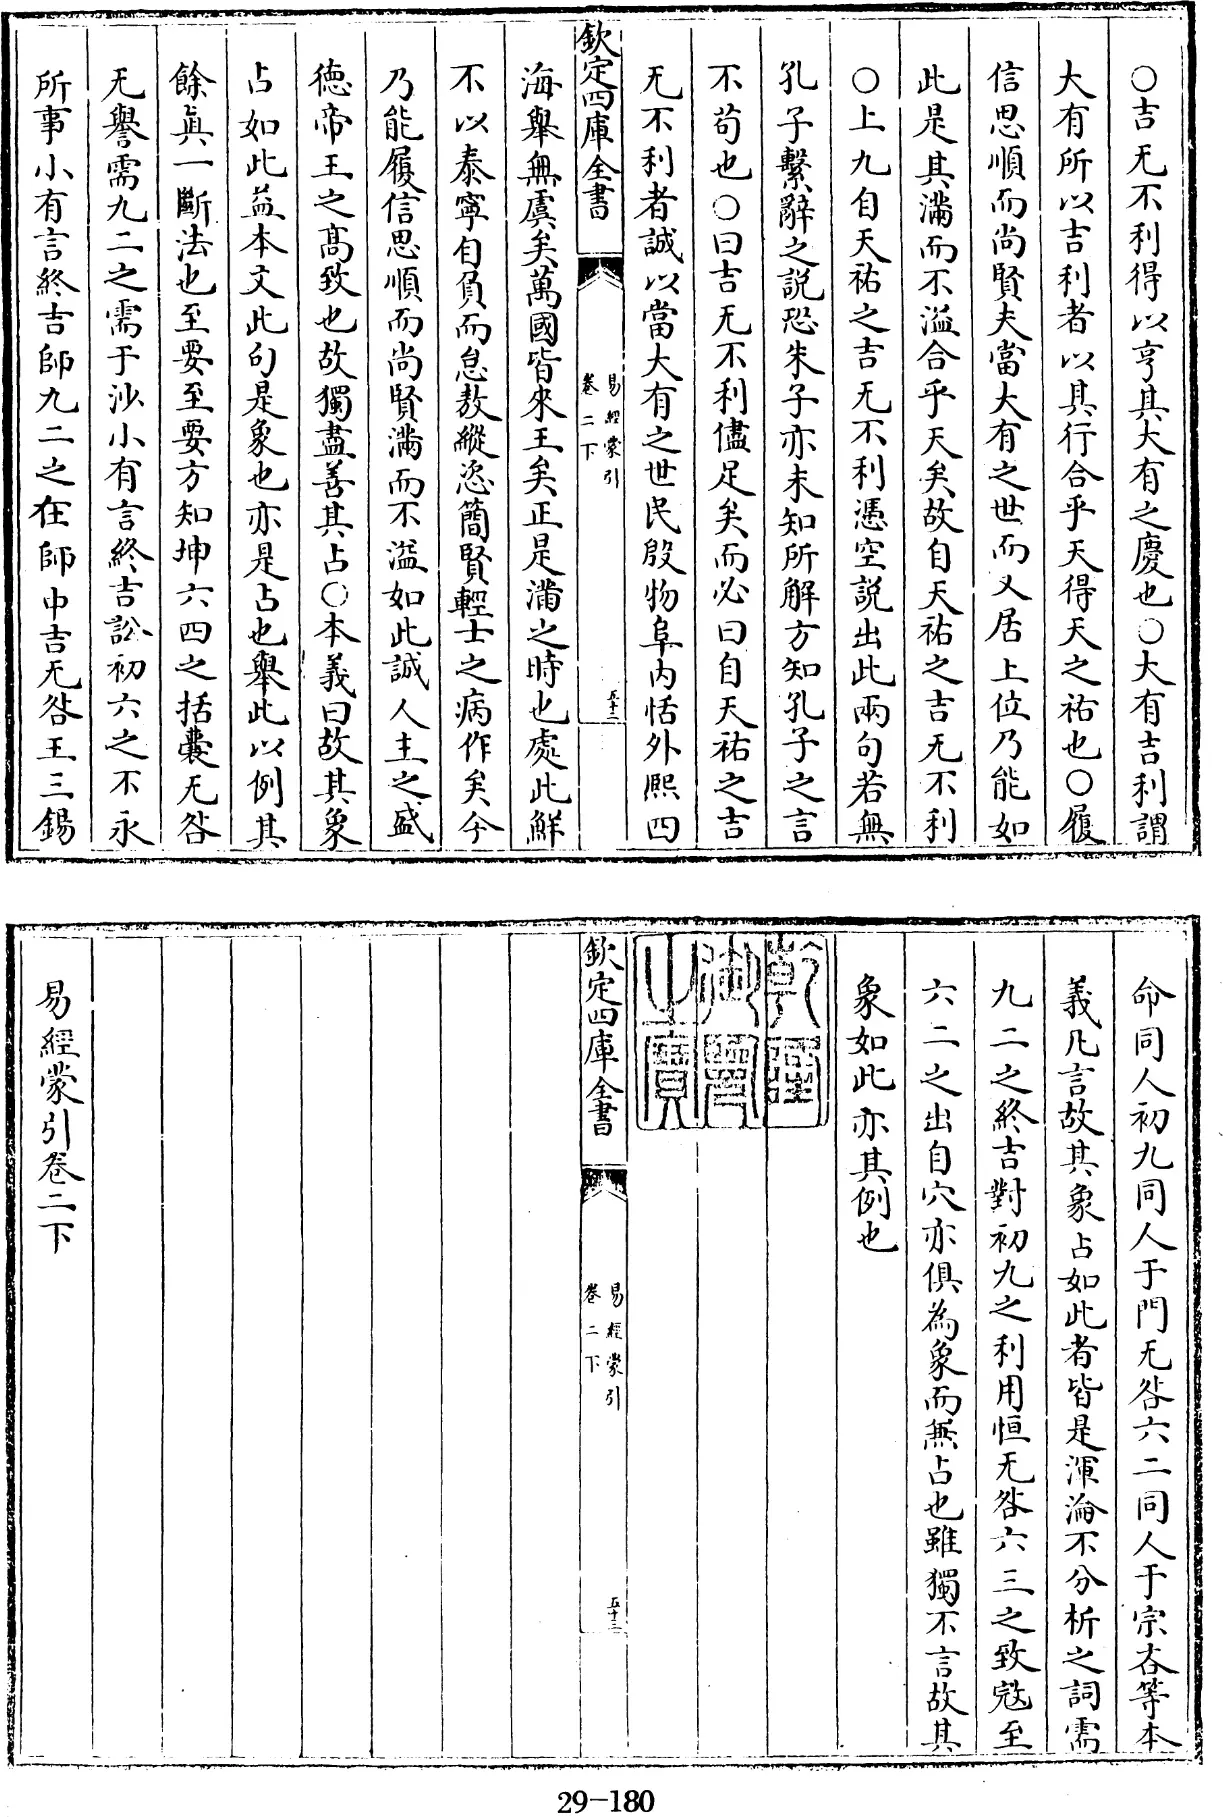 ○吉无不利得以亨其大有之慶也○大有吉利謂
大有所以吉利者以其行合乎天得天之祐也○履
信思順而尚賢夫當大有之世而又居上位乃能如
此是其滿而不溢合乎天矣故自天祐之吉无不利
○上九自天祐之吉无不利憑空説出此兩句若無
孔子繫辭之説恐朱子亦未知所解方知孔子之言
不苟也○曰吉无不利儘足矣而必曰自天祐之吉
无不利者誠以當大有之世民殷物阜内恬外熈四
欽定四庫全書
易經蒙引
卷二下
五十二
海舉無虞矣萬國皆來王矣正是滿之時也處此鮮
不以泰寧自負而怠敖縱恣簡賢輕士之病作矣今
乃能履信思順而尚賢滿而不溢如此誠人主之盛
徳帝王之髙致也故獨盡善其占○本義曰故其象
占如此益本文此句是象也亦是占也舉此以例其
餘眞一斷法也至要至要方知坤六四之括囊无咎
无譽需九二之需于沙小有言終吉訟初六之不永
所事小有言終吉師九二之在師中吉无咎王三錫
命同人初九同人于門无咎六二同人于宗吝等本
義凡言故其象占如此者皆是渾淪不分析之詞需
九二之終吉對初九之利用恒无咎六三之致宼至
六二之出自穴亦俱為象而無占也雖獨不言故其
象如此亦其例也
乾隆御覽之寶
欽定四庫全書
易經蒙引
卷二下
五十三
易經蒙引卷二下
29-180